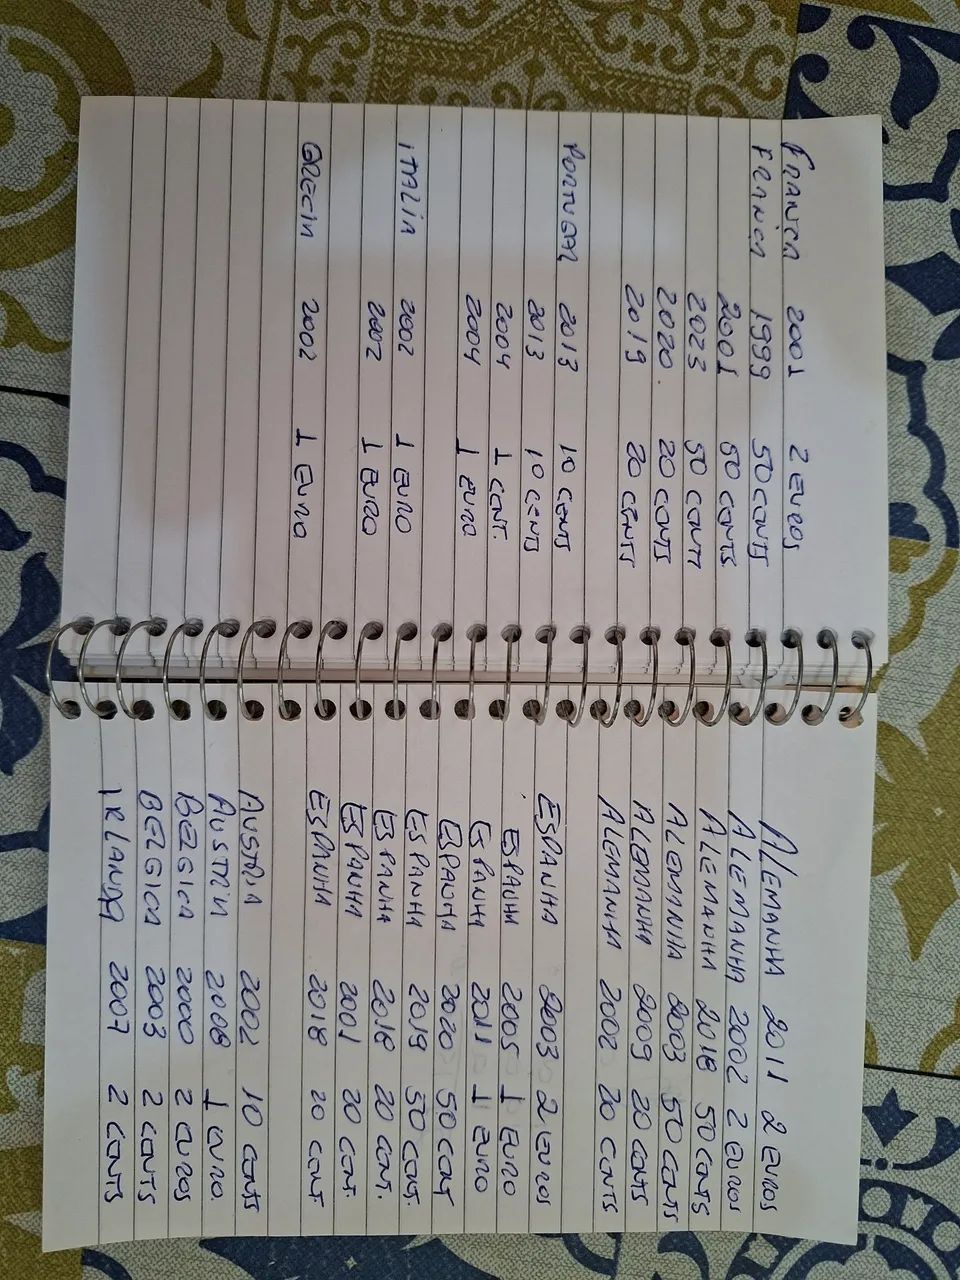 França 2001 2 EUROS
FRANÇA 1999 50 CENTS
2001 50 CENTS
2023 50 CENT
2020 20 CENTS
2019 20 CENTS
PORTUGAL 2013 10 CENTS
2013 10 CENTS
2004 1 CENT.
2004 1 EURO
iTALIA 2002 1 EURO
2002 1 EURO
GRECIA 2002 1 EURO
ALEMANHA 2011 2 EUROS
ALEMANHA 2002 2 EUROS
ALEMANHA 2018 50 CENTS
ALEMANHA 2003 50 CENTS
ALEMANHA 2009 20 CENTS
ALEMANHA 2002 20 CENTS
ESPANHA 2003 2 EUROS
ESPANHA 2005 1 EURO
ESPANHA 2011 1 EURO
ESPANHA 2020 50 CENT
ESPANHA 2019 50 CENT.
ESPANHA 2018 20 CENT.
ESPANHA 2001 20 CENT.
ESPANHA 2018 20 CENT
AUSTRIA 2002 10 CENTS
AUSTRIA 2008 1 EURO.
BELGICA 2000 2 EUROS
BELGICA 2003 2 CENTS
IRLANDA 2007 2 CENTS